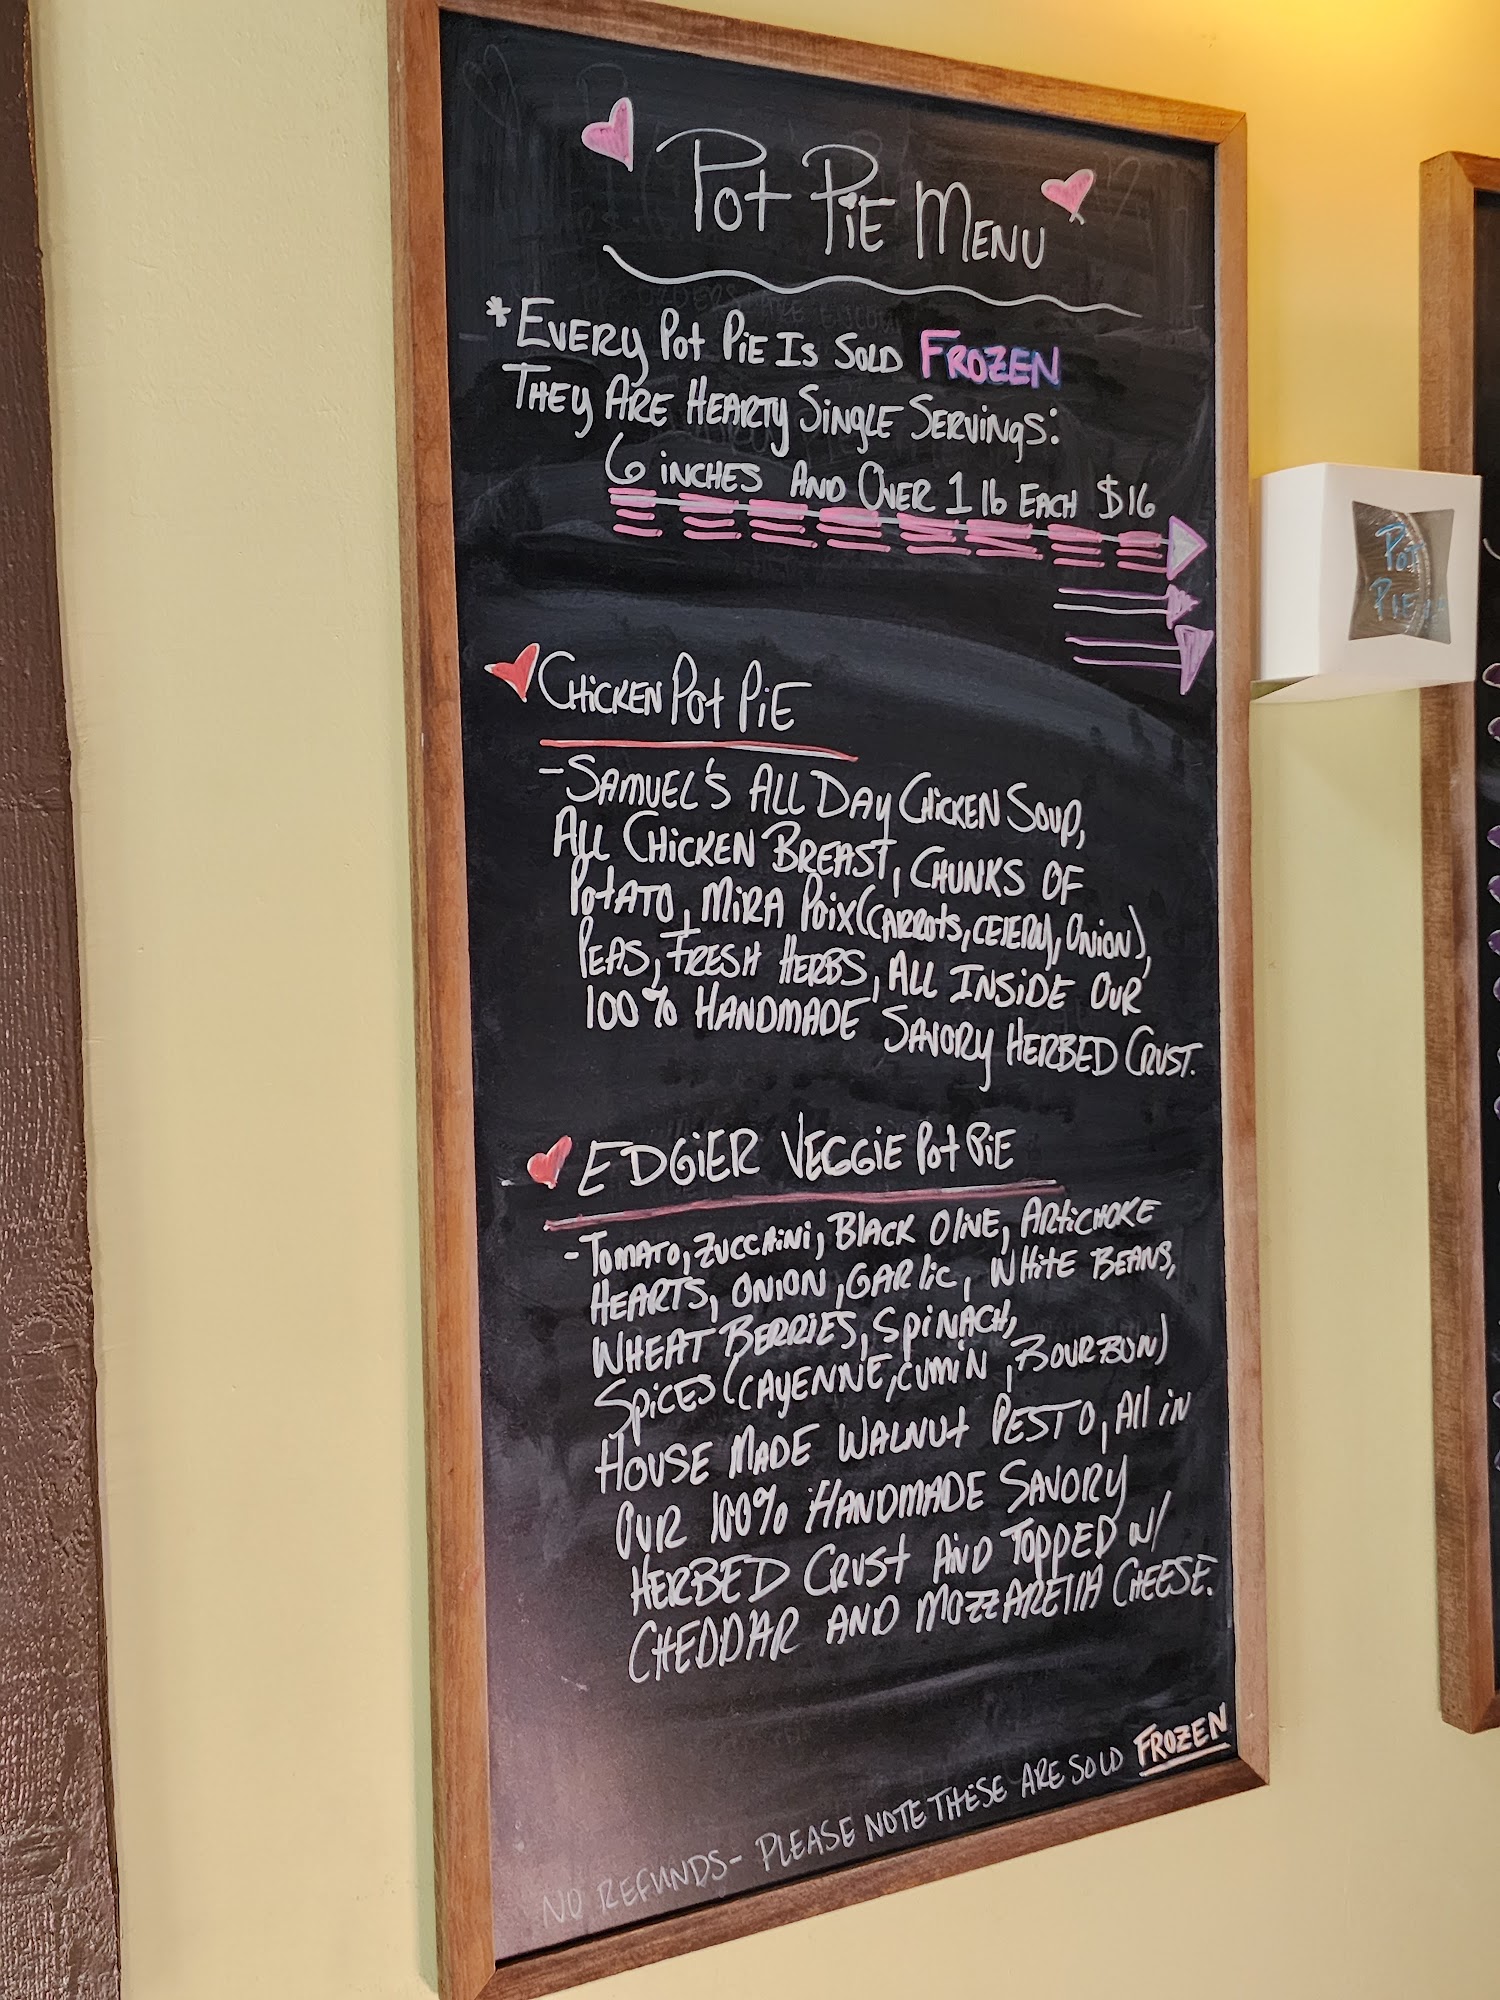 Pot Pie Menu
*Every Pot Pie Is Sold FROZEN
They Are Hearty Single Servings:
6 inches and Over 1 lb Each $16
Pot
Pie
Chicken Pot Pie
-Samuel's All Day Chicken Soup,
All Chicken Breast, Chunks of
Potato, Mira Poix (carrots, celery, onion),
Peas, Fresh Herbs, All Inside Our
100% Handmade Savory Herbed Crust.
Edgier Veggie Pot Pie
-Tomato, Zuccaini, Black Olive, Artichoke
Hearts, Onion, Garlic, White Beans,
Wheat Berries, Spinach,
Spices (cayenne, cumin, Bourbon)
House Made Walnut Pesto, All in
Our 100% Handmade Savory
Herbed Crust And Topped w/
Cheddar and Mozzarella Cheese.
NO REFUNDS- PLEASE NOTE THESE ARE SOLD FROZEN